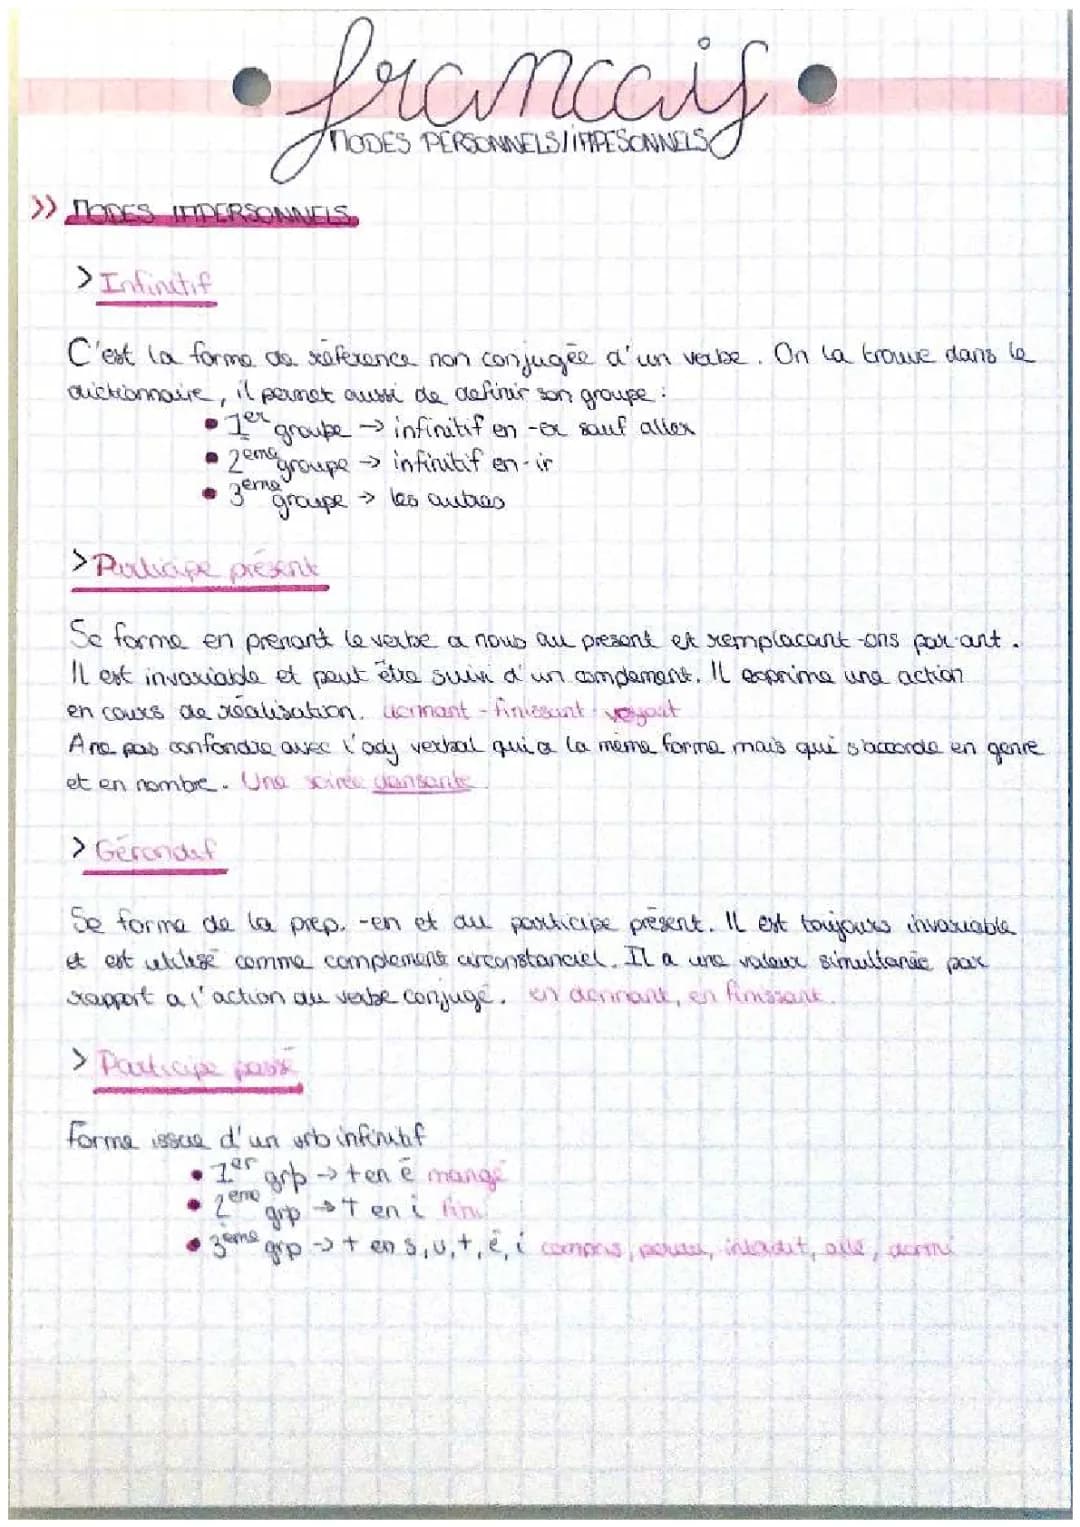 francais
MODES PERSONNELS/IMPESONNELS
>> MODES IMPERSONNELS
> Infinitif
C'est la forme de référence non conjugée d'un verbe. On la trouve dans le
dictionnaire, il permet aussi de definir son groupe :
• 1er groupe -> infinitif en -er sauf aller
• 2eme groupe -> infinitif en -ir
• 3eme groupe -> les autres
> Participe présent
Se forme en prenant le verbe a nous au present et remplacant -ons par -ant.
Il est invariable et peut être suivi d'un complement. Il exprime une action
en cours de réalisation. dormant - finissant - voyant
A ne pas confondre avec l'adj verbal qui a la même forme mais qui s'accorde en genre
et en nombre. Une soirée dansante
> Gérondif
Se forme de la prep. -en et du participe présent. Il est toujours invariable
et est utilisé comme complement circonstanciel. Il a une valeur simultanée par
rapport a l'action du verbe conjugé. en dormant, en finissant.
> Participe passé
Forme issue d'un vrb infinitif
• 1er grp -> + en é mangé
• 2eme grp -> + en i fini
• 3ème grp -> + en s, u, t, é, i compris, perdu, interdit, allé, dormi